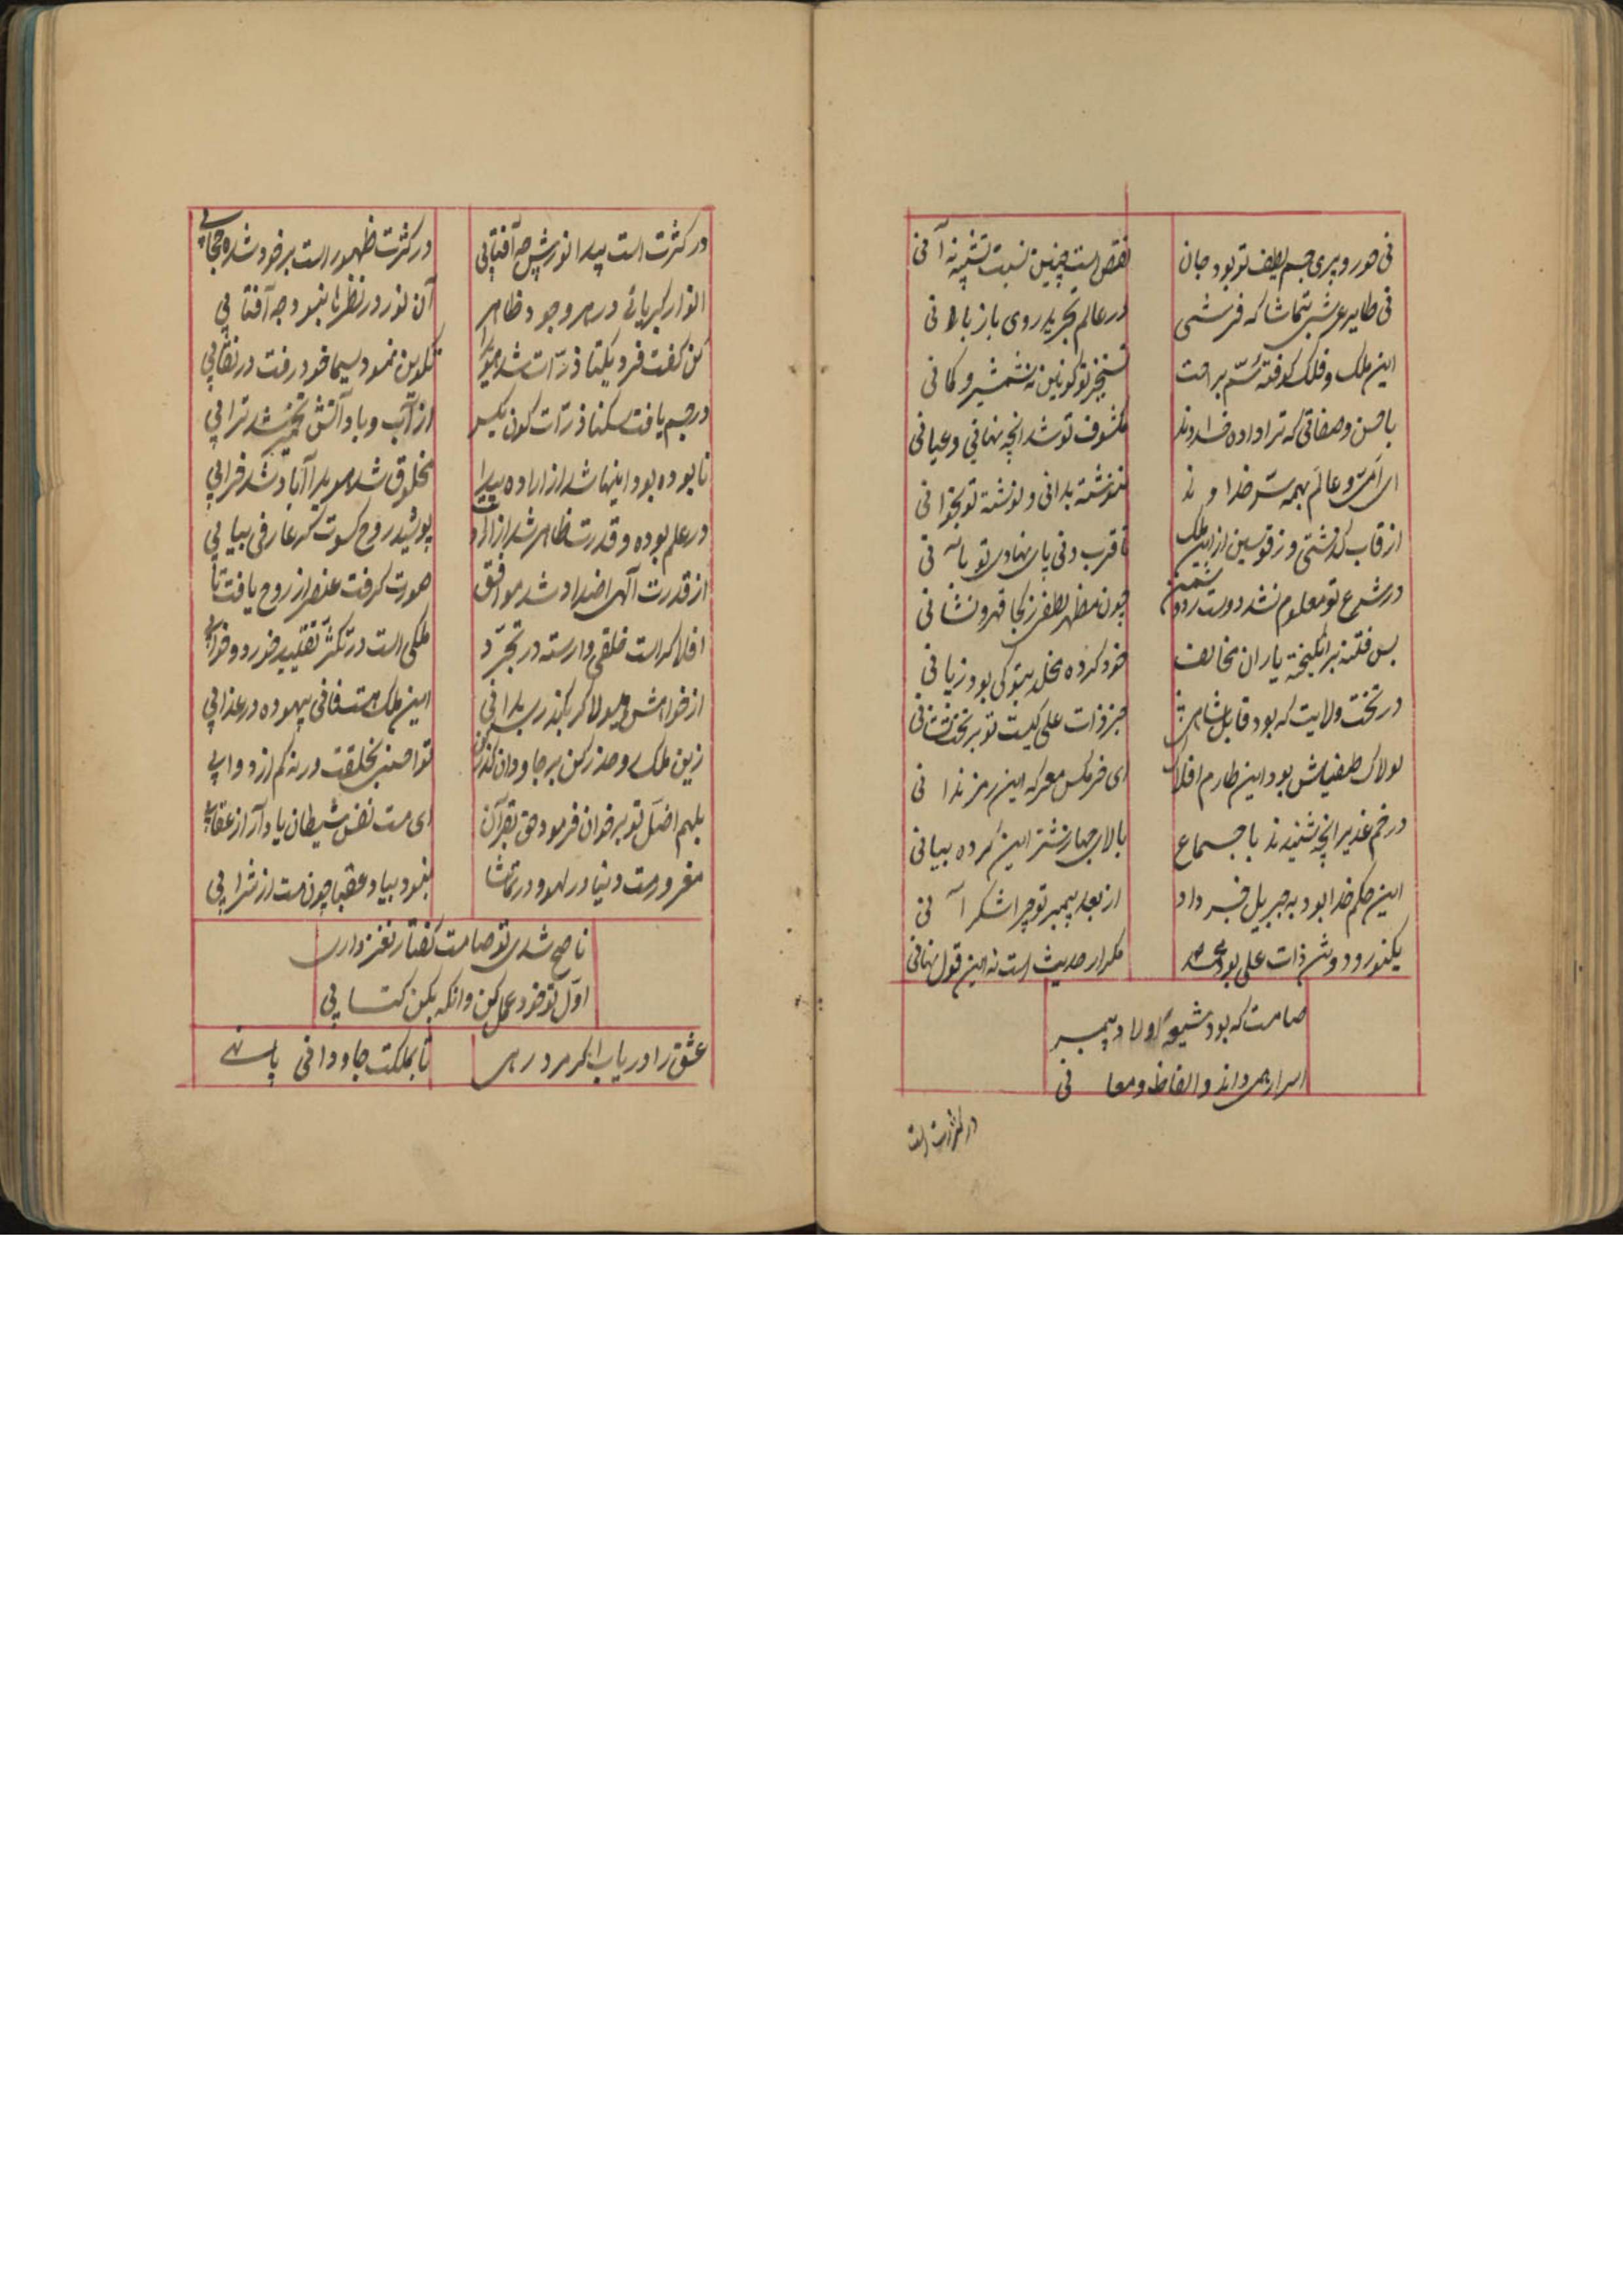 نی حور و پری جسم لطیف تو بود جان
نقص است چنین نسبت تشبیه آنی
نی طایر عرشی بتماشا که فرشی
در عالم تجرید روی باز باطنی
این ملک و فلک گرفته سم براحت
تسخیر تو کونین نه شمشیر و کمانی
با حسن و صفاتی که ترا داده خداوند
مکشوف تو شد انچه نهانی و عیانی
ای امت و عالم بهمه سر خداوند
ننوشته بدانی و نوشته تو بخوانی
از قاب گذشتی و ز قوسین ازین ملک
تا قرب دنی پای نهادی تو
در شرع تو معلوم نشد دوست ز دشمن
چون مظهر لطفی ز کجا قهر و نشانی
بس فتنه برانگیخته یاران مخالف
خود کرده بتو کی بود زیانی
در تخت ولایت که بود قابل شاهی
جز ذات علی کیست تو بر تخت نشانی
لولاک طفیلش بود این طارم افلاک
ای خر مگس معرکه این رمز ندانی
در خم غدیر انچه شنیدند باجماع
بالای جهاز شتر این کرده بیانی
این حکم خدا بود به جبریل خبر داد
از بعد پیمبر تو چرا
یکنور و دو تن ذات علی بود و محمد
مکرار حدیث است نه این قول نهانی
صامت که بود شیعهٔ اولاد پیمبر
اسرار همی داند و الفاظ و معانی
در کثرت است
در کثرت است پیدا نورش چه آفتابی
در کثرت ظهور است بر خود شده حجابی
انوار کبریائی در هر وجود ظاهر
آن نور در نظرها بنمود چه آفتابی
کن گفت فرد یکتا ذرات شد هویدا
تکوین نمود سیما خود رفت در نقابی
در جسم یافت سکنا ذرات کون یکسر
از آب و باد و آتش تخمیر شد ترابی
نابوده بود اینها شد از اراده پیدا
مخلوق شد هویدا آباد شد خرابی
در علم بوده و قدرت ظاهر شد از اراده
پوشید روح کسوت گر عارفی بیابی
از قدرت آلهی اضداد شد موافق
صورت گرفت عنصر از روح یافت تابی
افلاکر است خلقی وارسته در تجرد
ملکی است در تکثر تقلید خورد و خوابی
از خواهش هیولا گر بگذری بدانی
این ملک هست فانی بیهوده در عذابی
زین ملک و حذر کن بر جاودان گذر کن
تو احسنی بخلقت ورنه کم از دوابی
بلهم اضل تو بر خوان فرمود حق بقرآن
ای مست نفس شیطان یاد آر از عقابی
مغرور مست دنیا در لهو و در تماشا
بنمود بیاد عقبا چون مست از شرابی
ناصح شدی تو صامت گفتار نغز داری
اول تو خود عمل کن وانگه بکن کتابی
عشق را دریاب اگر مرد رهی
تا بملکت جاودانی پا نهی